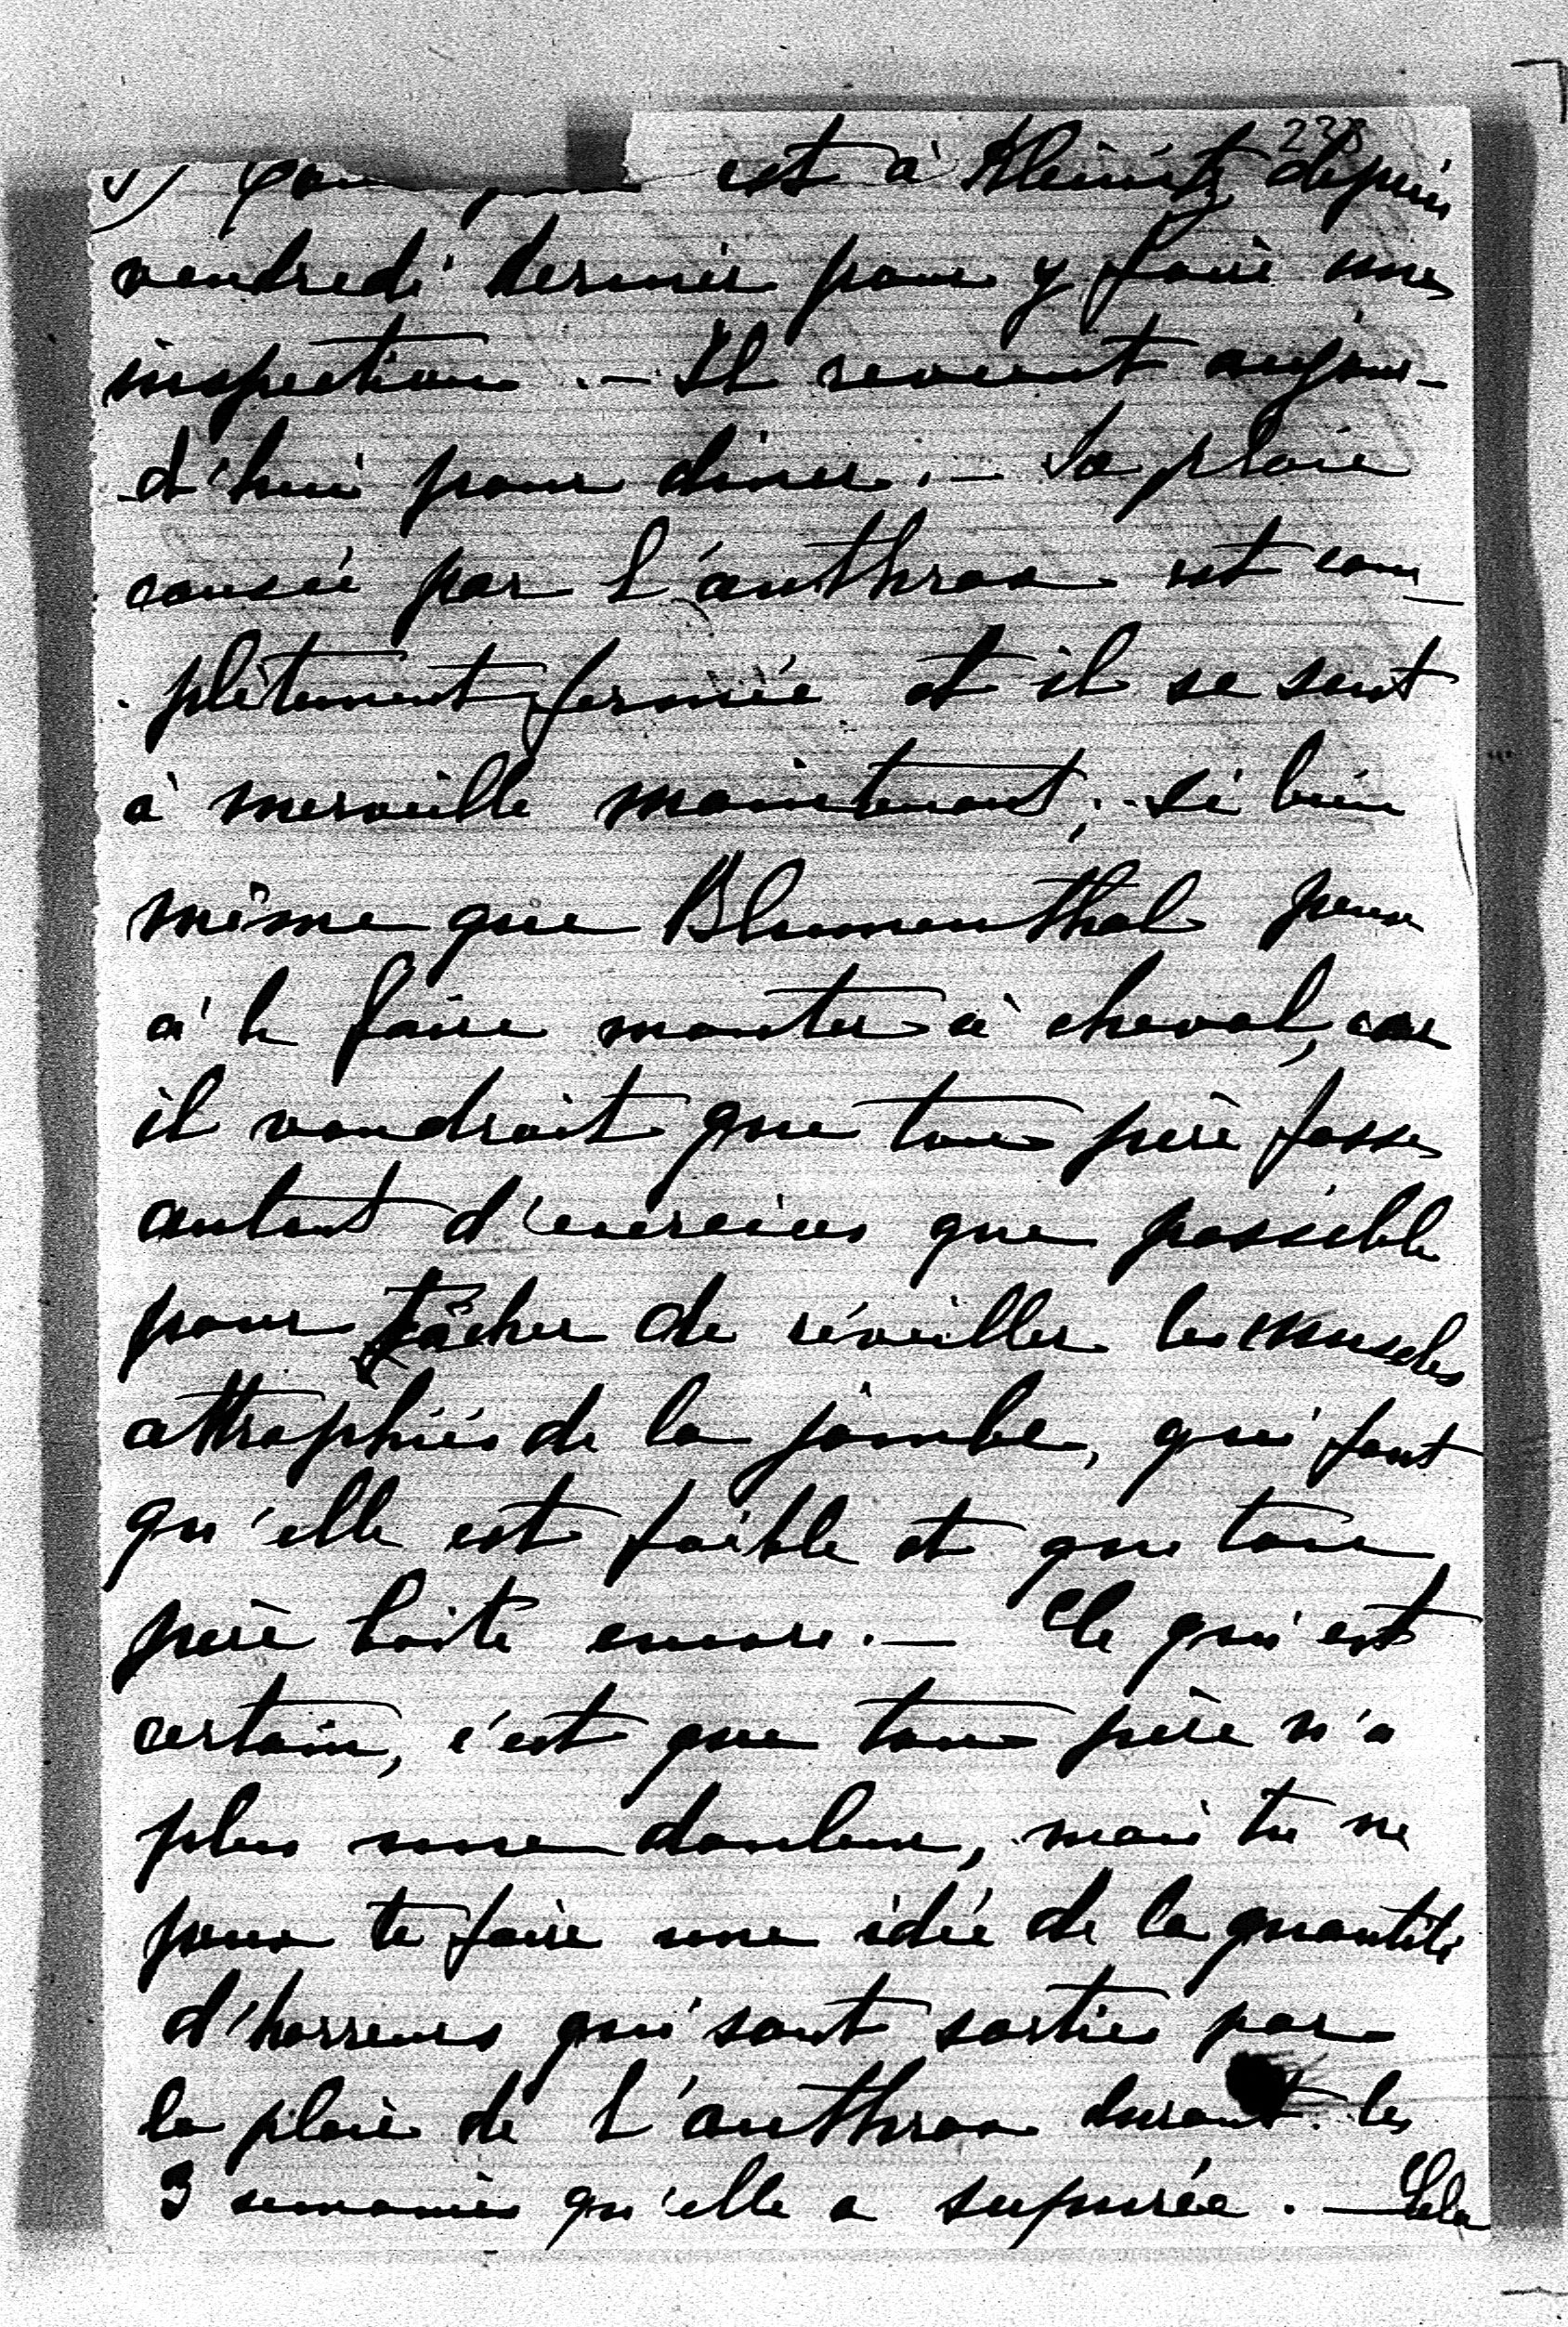 238
5/ est à Kleinitz depuis
vendredi dernier pour y faire une
inspection. — Il revient aujour-
d'hui pour diner. — La plaie
causée par l'anthrax est com-
plètement fermée et il se sent
à merveille maintenant; si bien
même que Blumenthal pense
à le faire monter à cheval, car
il voudrait que ton père fasse
autant d'exercices que possible
pour tâcher de réveiller les muscles
attrophiés de la jambe, qui font
qu'elle est faible et que ton
père boite encore. — Ce qui est
certain, c'est que ton père n'a
plus une douleur, mais tu ne
peux te faire une idée de la quantité
d'horreurs qui sont sorties par
la plaie de l'anthrax durant les
3 semaines qu'elle a supurée. — Cela